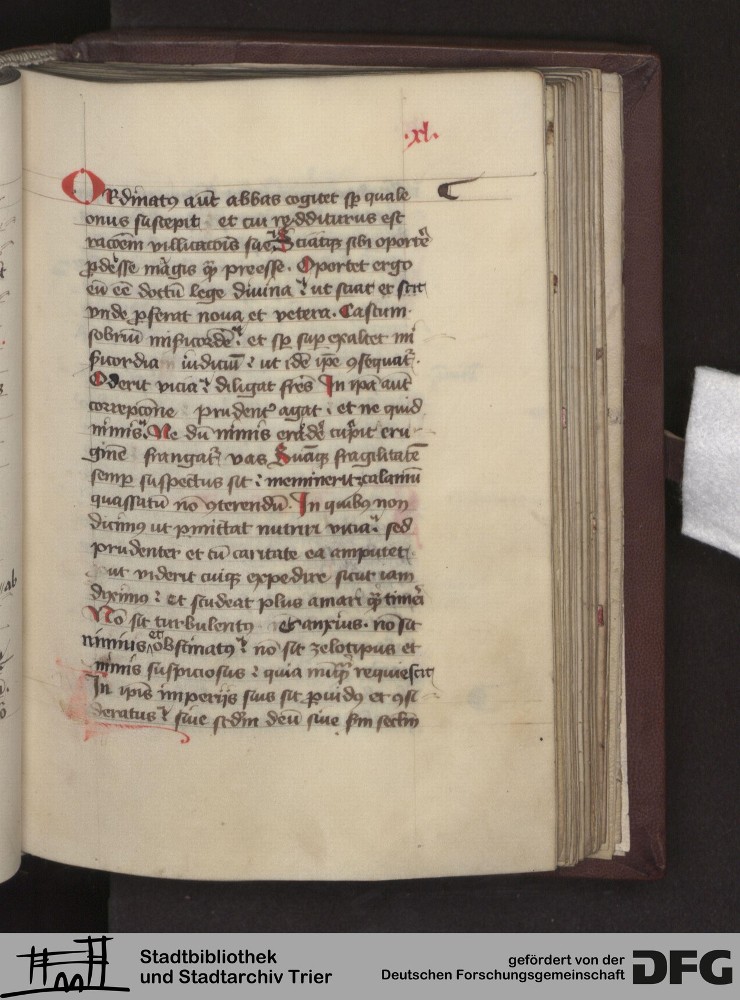 .xl.
ORdinatꝰ aūt abbas cogitet sꝑ quale
onus suscepit et cui redditurus est
racōem villicacōis sue Sciatqꝫ sibi oportē
ꝓdesse magis qͣ̄ preesse . Oportet ergo
eū eē doctū lege divina ut sciat et sit
vnde ꝓferat noua et vetera . Castum
sobriū misicordē et sꝑ suꝑexaltet mi
sicordia iudiciū ut idē ip̄e ꝯsequat᷑ .
Oderit vicia diligat fr̄es In ip̄a aūt
correpcōne prudent᷑ agat et ne quid
nimis . Ne dū nimis eradē cupit eru
ginē frangat᷑ vas Suāqꝫ fragilitatē
semꝑ suspectus sit meminerit calamū
quassatū nō ꝯterendū . In quibꝰ non
dicimꝰ ut ꝑmittat nutriri vicia sed
prudenter et cū caritate ea amputet
ut viderit cuiqꝫ expedire sicut iam
diximꝰ Et studeat plus amari qͣ̄ timēi
Nō sit turbulentꝰ et anxius . nō sit
nimius et obstinatꝰ nō sit zelotipus et
nimis suspiciosus quia nūqͣ̄ requiescit
In ip̄is imperijs suis sit ꝓuidꝰ et ꝯsi
deratus siue scd̄m deū siue scd̄m sc̄lm
Stadtbibliothek
und Stadtarchiv Trier
gefördert von der
Deutschen Forschungsgemeinschaft
DFG